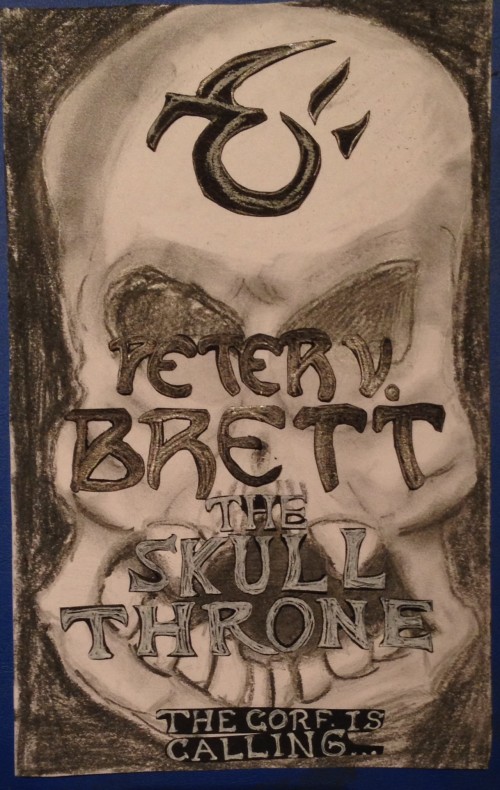 PETER V.
BRETT
THE
SKULL
THRONE
THE CORE IS
CALLING...